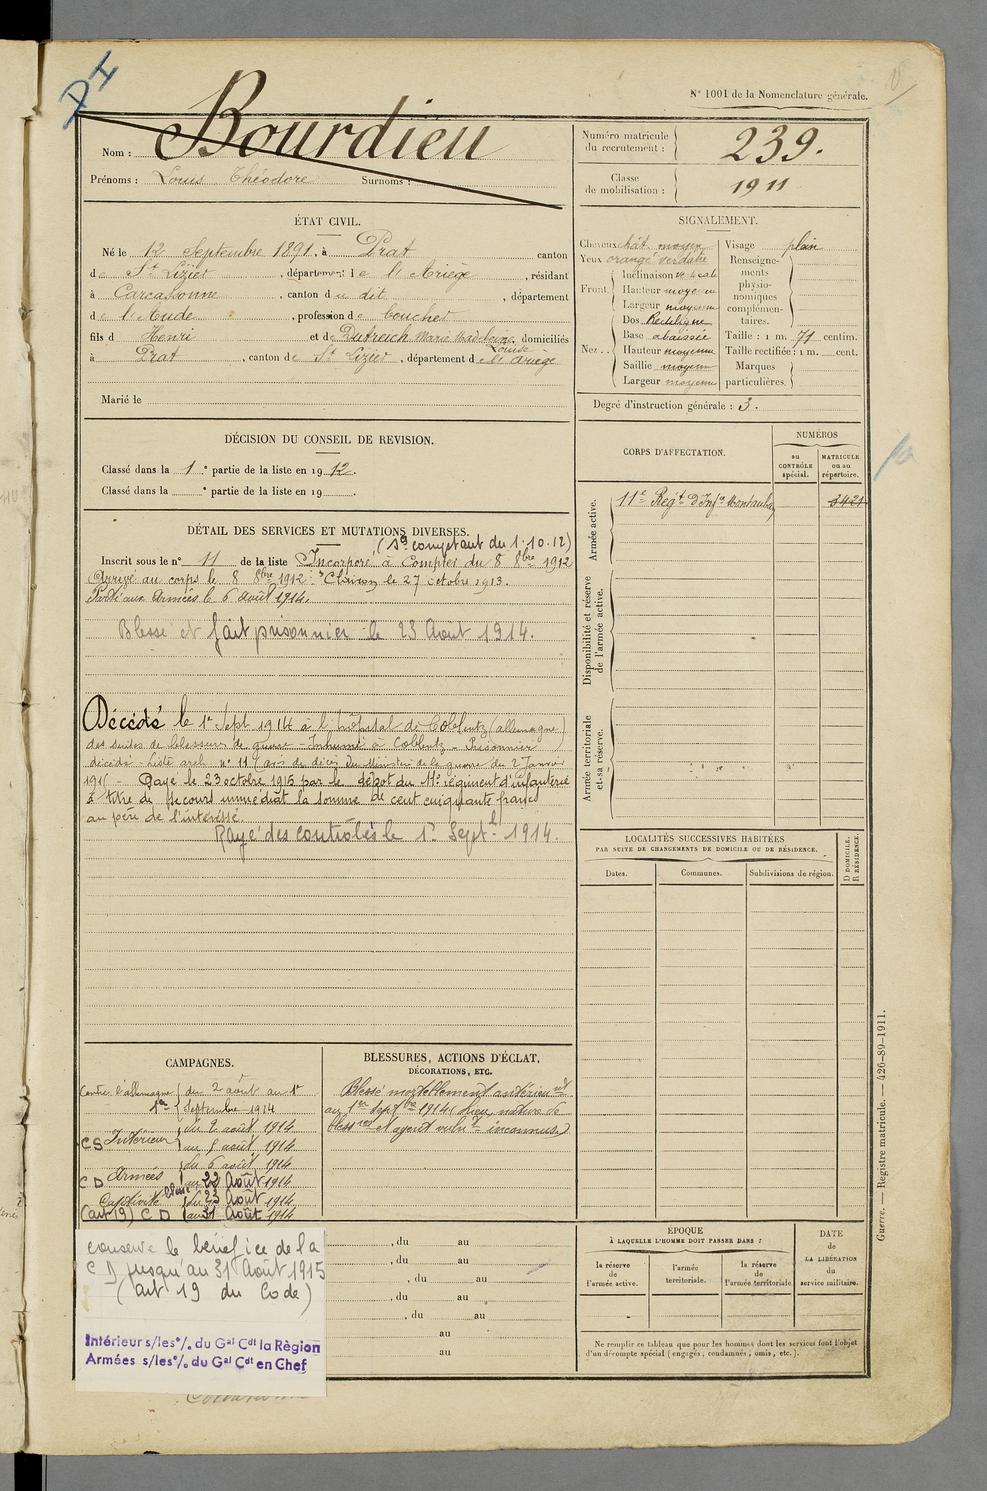 D I
N° 1001 de la Nomenclature générale.
Nom : Bourdieu
Prénoms : Louis Théodore Surnoms :
Numéro matricule du recrutement : 239.
Classe de mobilisation : 1911
ÉTAT CIVIL.
Né le 12 Septembre 1891, à Prat canton
de St Lizier, département de l'Ariège, résidant
à Carcassonne, canton du dit, département
de l'Aude, profession de boucher
fils d Henri et de Dutreich Marie Madeleine Louise, domiciliés
à Prat, canton de St Lizier, département de l'Ariège
Marié le
SIGNALEMENT.
Cheveux chât. moyen
Yeux orangé verdâtre
Front. Inclinaison verticale
Hauteur moyenne
Largeur moyenne
Nez. . Dos Rectiligne
Base abaissée
Hauteur moyenne
Saillie moyenne
Largeur moyenne
Visage plein
Renseignements physionomiques complémentaires.
Taille : 1 m. 71 centim.
Taille rectifiée : 1 m. cent.
Marques particulières.
Degré d'instruction générale : 3.
DÉCISION DU CONSEIL DE REVISION.
Classé dans la 1e partie de la liste en 1912.
Classé dans la e partie de la liste en 19 .
DÉTAIL DES SERVICES ET MUTATIONS DIVERSES.
(Sce comptant du 1.10.12)
Inscrit sous le n° 11 de la liste Incorporé à Compter du 8 8bre 1912
Arrivé au corps le 8 8bre 1912. Clairon le 27 octobre 1913.
Parti aux Armées le 6 août 1914.
Blessé et fait prisonnier le 23 Aout 1914.
Décédé le 1er Sept 1914 à l'hôpital de Coblentz (allemagne)
des suites de blessures de guerre - Inhumé à Coblentz - Prisonnier
décédé - Liste arch. n° 11 (avis de décès du Ministre de la guerre du 2 Janvier
1915 - Payé le 23 octobre 1915 par le dépôt du 11e régiment d'infanterie
à titre de secours immédiat la somme de cent cinquante francs
au père de l'intéressé.
Rayé des contrôles le 1er Sept. 1914.
CORPS D'AFFECTATION.
NUMÉROS
au CONTRÔLE spécial.
MATRICULE ou au répertoire.
Armée active.
11e Régt D'Infie Montauban 3421
Disponibilité et réserve de l'armée active.
Armée territoriale et sa réserve.
LOCALITÉS SUCCESSIVES HABITÉES
PAR SUITE DE CHANGEMENTS DE DOMICILE OU DE RÉSIDENCE.
Dates.
Communes.
Subdivisions de région.
D DOMICILE.
R RÉSIDENCE.
CAMPAGNES.
Contre l'allemagne du 2 août au 1er
Septembre 1914
CS Intérieur du 2 août 1914
au 5 août 1914
CD Armées du 6 août 1914
au 22 Août 1914
Captivité blessé du 23 Août 1914
(art 19) CD au 31 Août 1914
conserve le bénéfice de la
C D jusqu'au 31 Août 1915
(art 19 du Code)
Intérieur s/les °/. du Gal Cdt la Règion
Armées s/les °/. du Gal Cdt en Chef
BLESSURES, ACTIONS D'ÉCLAT,
DÉCORATIONS, ETC.
Blessé mortellement antérieurnt
au 1er septbre 1914 (lieu, nature de
bless res et agent vulnt inconnus)
, du au
, du au
, du au
, du au
, du au
au
au
ÉPOQUE
À LAQUELLE L'HOMME DOIT PASSER DANS :
la réserve de l'armée active.
l'armée territoriale.
la réserve de l'armée territoriale
DATE de LA LIBÉRATION du service militaire.
Ne remplir ce tableau que pour les hommes dont les services font l'objet
d'un décompte spécial (engagés, condamnés, omis, etc.).
Guerre. — Registre matricule. — 426-89-1911.